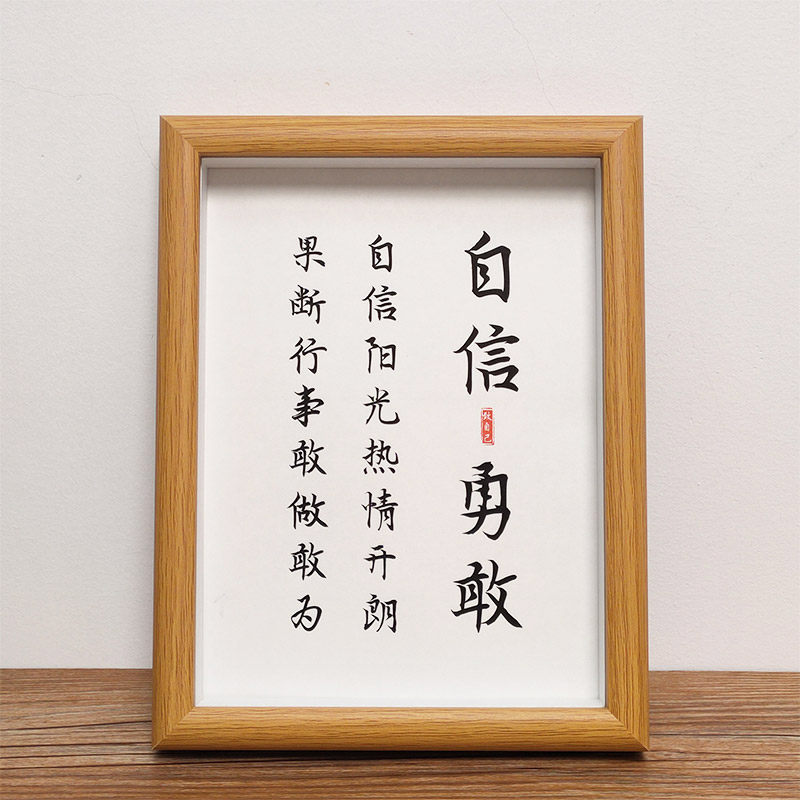 自信
做自己
勇敢
自信阳光热情开朗
果断行事敢做敢为